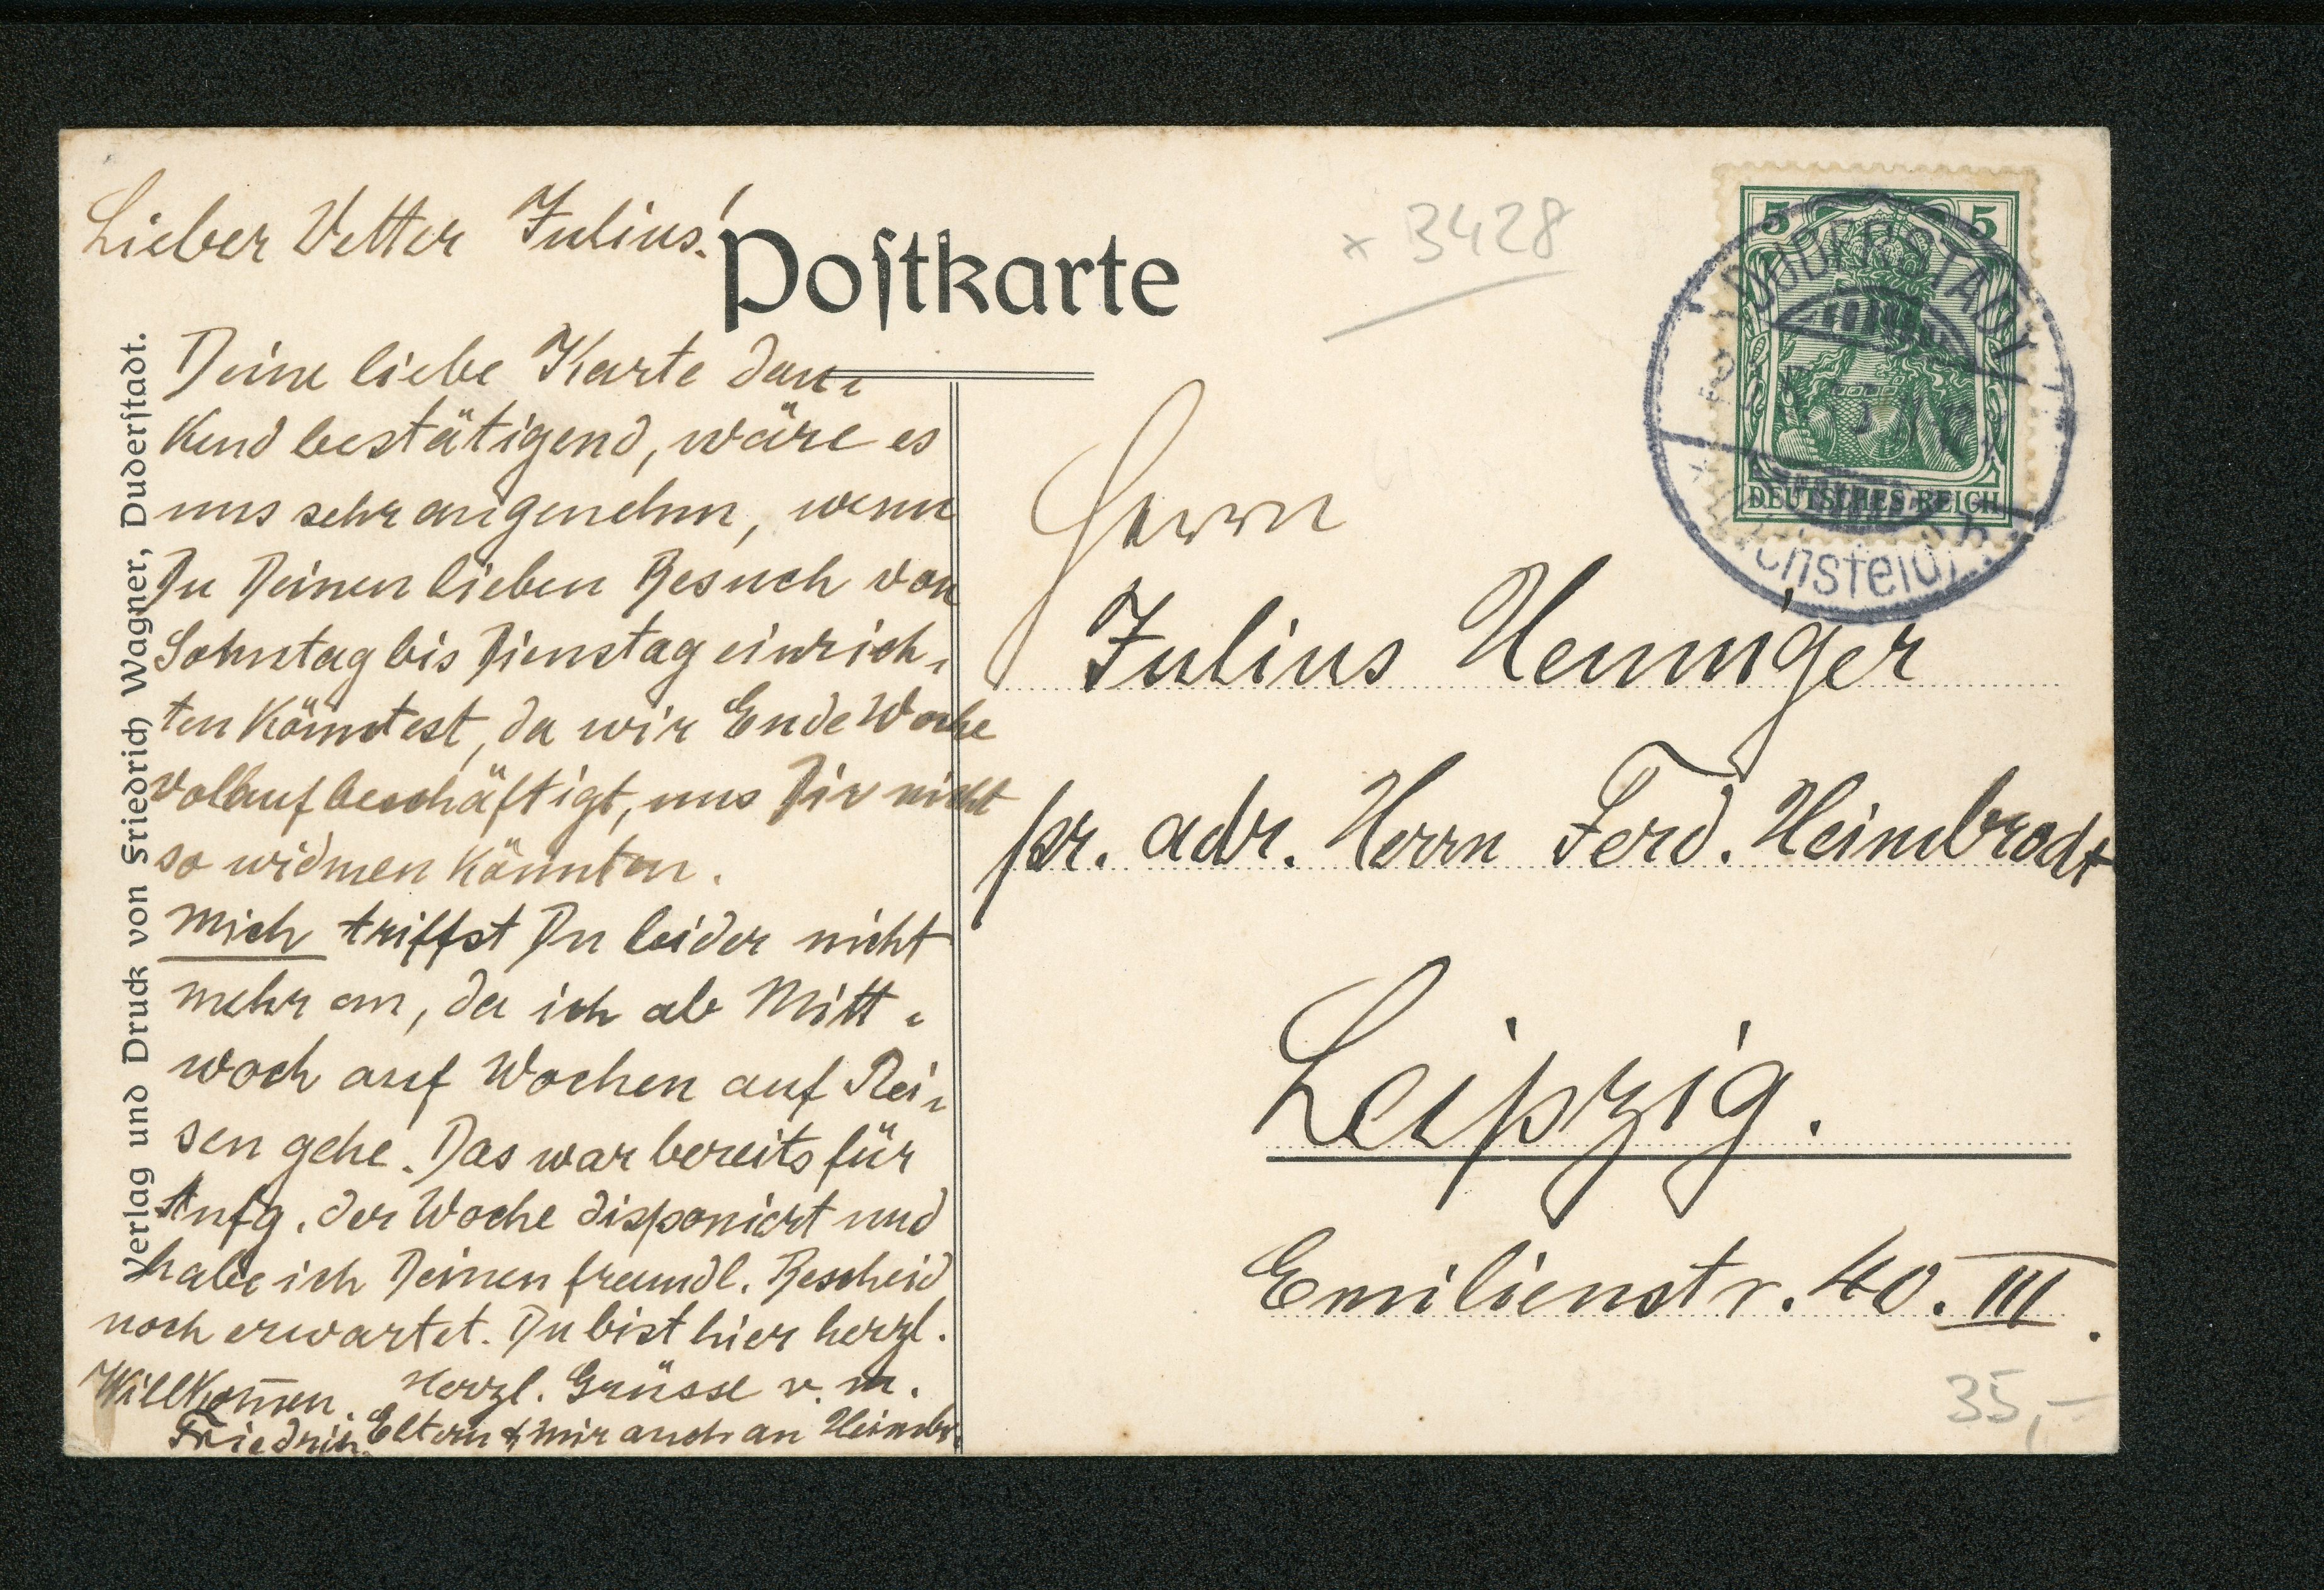 Lieber Vetter Julius!
Postkarte
Deine liebe Karte dan-
kend bestätigend, wäre es
uns sehr angenehm, wenn
Du Deinen lieben Besuch von
Sonntag bis Dienstag einrich-
ten könntest, da wir Ende Woche
vollauf beschäftigt, uns Dir nicht
so widmen könnten.
Mich triffst Du leider nicht
mehr an, da ich ab Mitt-
woch auf Wochen auf Rei-
sen gehe. Das war bereits für
Anfg. der Woche disponiert und
habe ich Deinen freundl. Bescheid
noch erwartet. Du bist hier herzl.
Willkom̅en. Herzl. Grüsse v. m.
Friedrich Eltern & mir auch an Heimbr.
Verlag und Druck von Friedrich Wagner, Duderstadt.
* 3428
5 5
DEUTSCHES REICH
DUDERSTADT
Herrn
Julius Henniger
pr. adr. Herrn Ferd. Heimbrodt
Leipzig.
Emilienstr. 40. III.
35,-